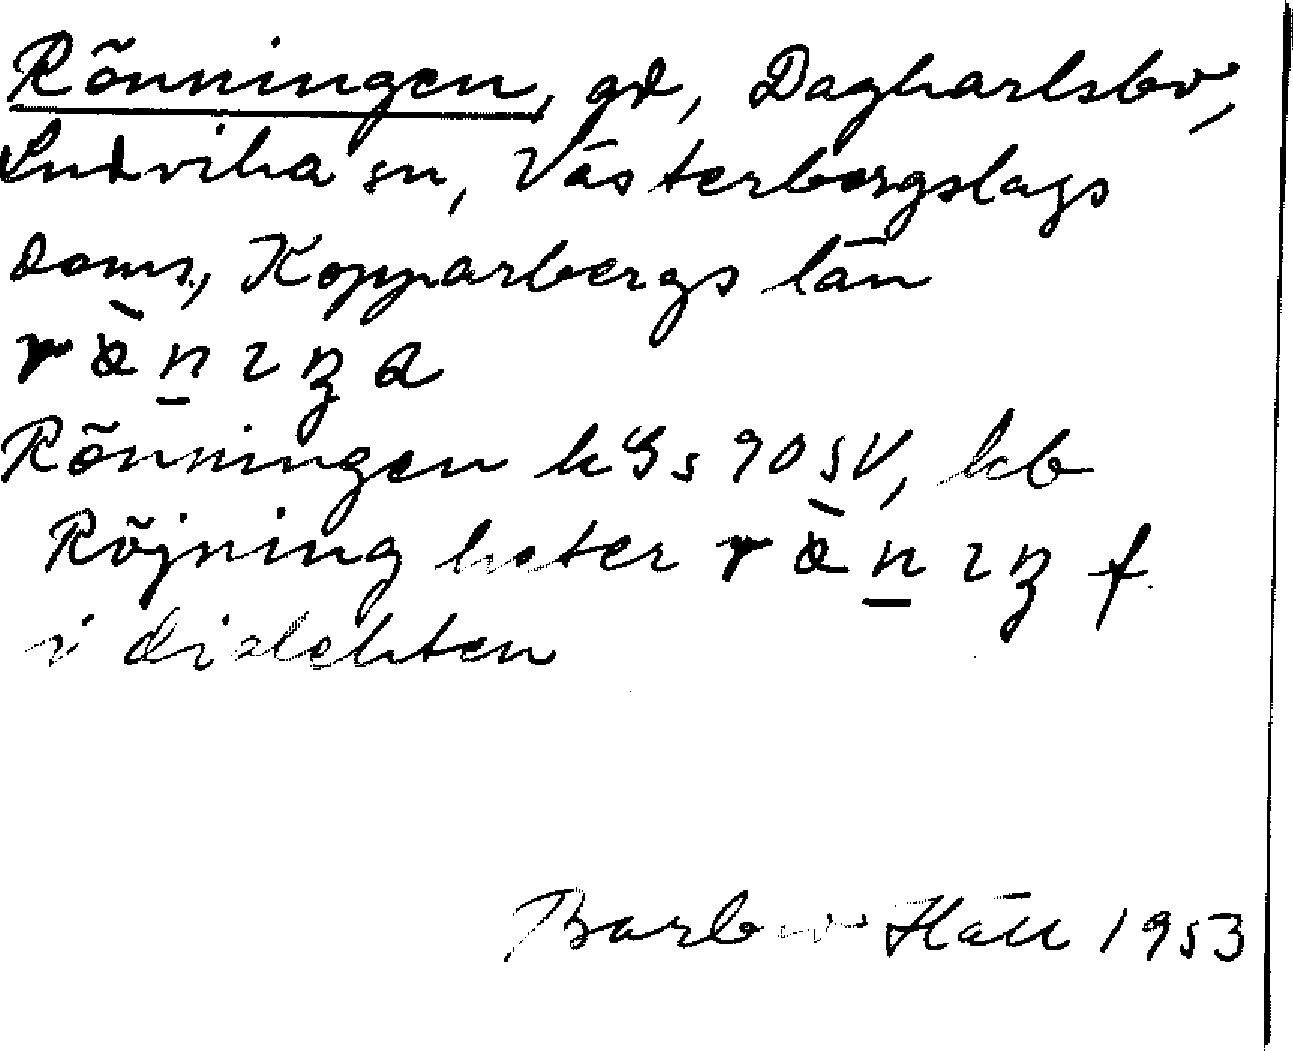 Rönningen, gd, Dagkarlsbo,
Ludvika sn, Västerbergslags
doms., Kopparbergs län
Rönningen
Röjning heter f.
i dialekten
Barbro 1953